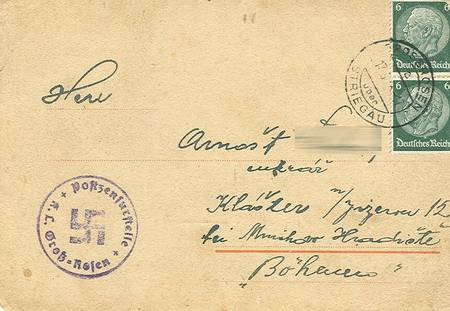 6
Deutsches Reich
6
Deutsches Reich
GROSS-ROSEN
über
STRIEGAU
Herr
Arnošt
cukrář
Klášter n/Jizerou 12
bei Mnichovo Hradiště
"Böhmen"
+ Postzensurstelle +
K. L. Groß=Rosen